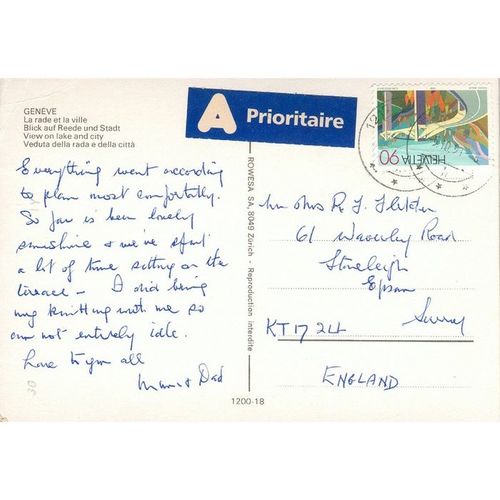 GENÈVE
La rade et la ville
Blick auf Reede und Stadt
View on lake and city
Veduta della rada e della città
A Prioritaire
HELVETIA 90
Everything went according
to plan most comfortably.
So far is been lovely
sunshine & we've spent
a lot of time sitting on the
terrace – I did bring
my knitting with me so
am not entirely idle.
Love to you all
Mum & Dad
ROWESA SA, 8049 Zürich - Reproduction interdite
1200-18
Mr Mrs R J Fletcher
61 Waverley Road
Stoneleigh
Epsom
Surrey
KT17 2LL
ENGLAND